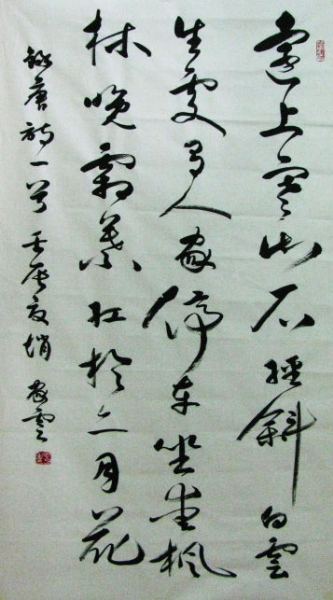 遠上寒山石徑斜白雲
生處有人家停車坐愛楓
林晚霜葉紅於二月花
錄唐詩一首壬辰夏